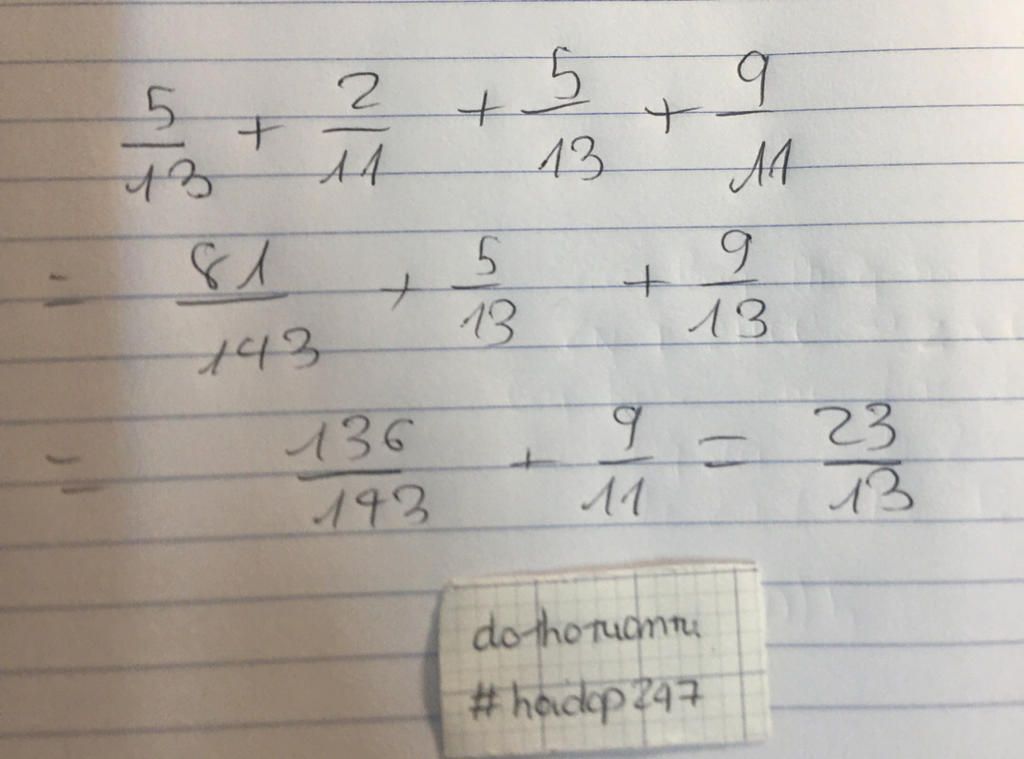 5/13 + 2/11 + 5/13 + 9/11
= 81/143 + 5/13 + 9/13
= 136/143 + 9/11 = 23/13
dothoruamru
#hoidap247